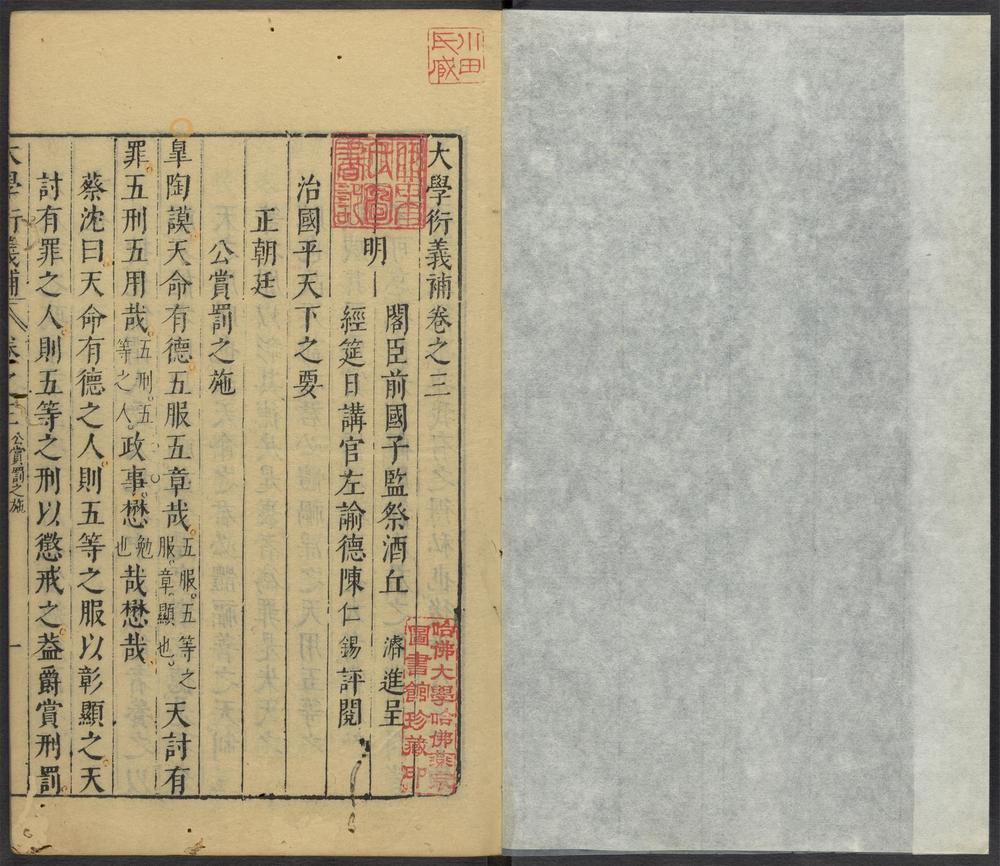 大學衍義補卷之三
明
閣臣前國子監祭酒丘濬進呈
經筵日講官左諭德陳仁錫評閱
治國平天下之要
正朝廷
公賞罰之施
臯陶謨天命有德五服五章哉五服五等之服章顯也天討有
罪五刑五用哉五刑五等之人政事懋勉也哉懋哉
蔡沈曰天命有德之人則五等之服以彰顯之天
討有罪之人則五等之刑以懲戒之葢爵賞刑罰
大學衍義補 卷之三 公賞罰之施 一
川田氏藏
哈佛大學哈佛燕京圖書館珍藏印